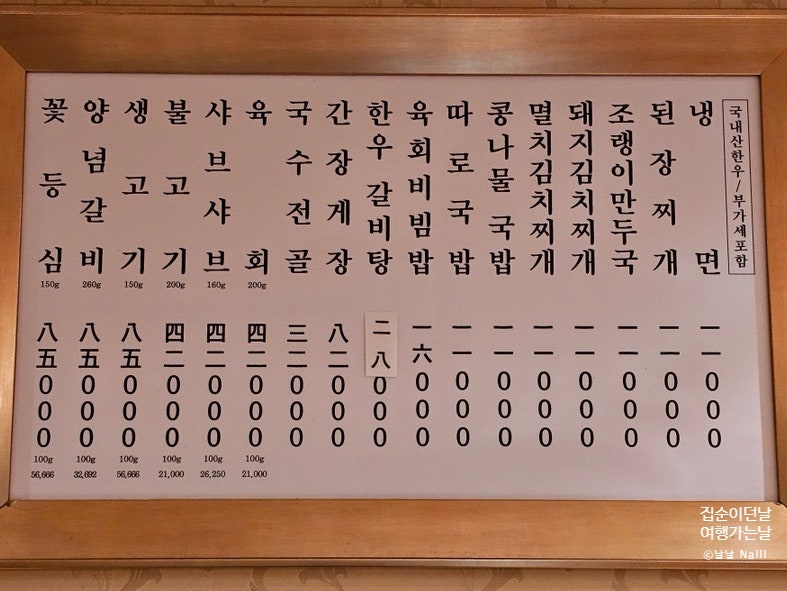 국내산한우/부가세포함
냉면
一一000
된장찌개
一一000
조랭이만두국
一一000
돼지김치찌개
一一000
멸치김치찌개
一一000
콩나물국밥
一一000
따로국밥
一一000
육회비빔밥
一六000
한우갈비탕
二八000
간장게장
八二000
국수전골
三二000
육회
200g
四二000
100g
21,000
샤브샤브
160g
四二000
100g
26,250
불고기
200g
四二000
100g
21,000
생고기
150g
八五000
100g
56,666
양념갈비
260g
八五000
100g
32,692
꽃등심
150g
八五000
100g
56,666
집순이던날
여행가는날
©날날 Nalll